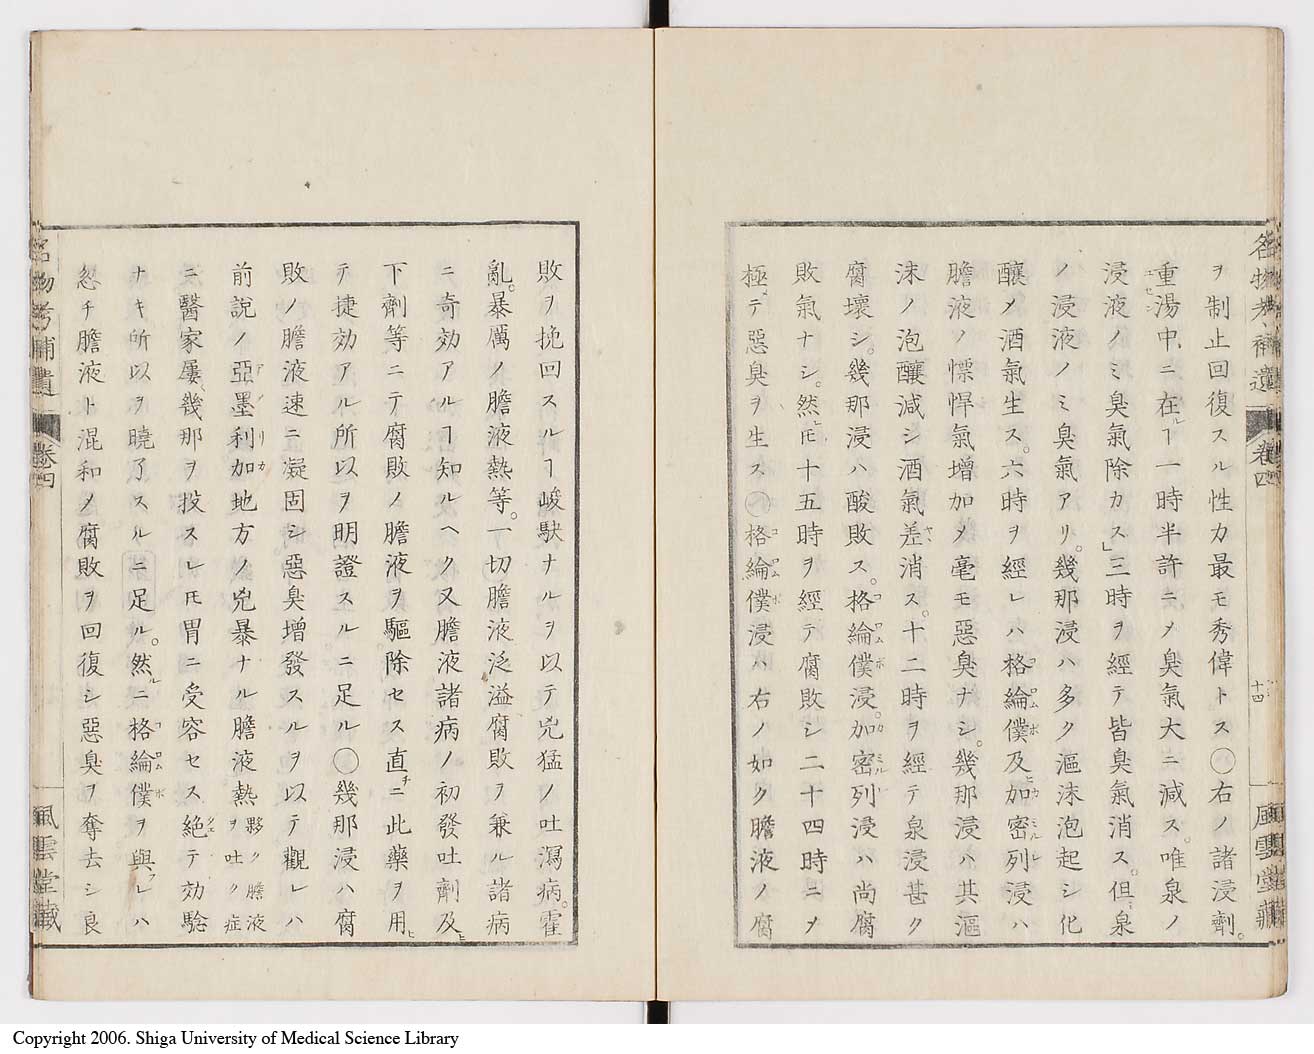 名物考補遺 卷四 十四 風雲堂藏
ヲ制止回復スル性力最モ秀偉トス〇右ノ諸浸劑。
重湯中ニ在ルヿ一時半許ニメ臭氣大ニ減ス。唯泉ノ
浸液ノミ臭氣除カス」三時ヲ經テ皆臭氣消ス。但泉
ノ浸液ノミ臭氣アリ。幾那浸ハ多ク漚沫泡起シ化
釀メ酒氣生ス。六時ヲ經レハ格綸僕及ヒ加密列浸ハ
膽液ノ慓悍氣增加メ毫モ惡臭ナシ。幾那浸ハ其漚
沫ノ泡釀減シ酒氣差消ス。十二時ヲ經テ泉浸甚ク
腐壞シ。幾那浸ハ酸敗ス。格綸僕浸。加密列浸ハ尚腐
敗氣ナシ。然ヒㄊ十五時ヲ經テ腐敗シ二十四時ニメ
極テ惡臭ヲ生ス〇格綸僕浸ハ右ノ如ク膽液ノ腐
敗ヲ挽回スルヿ峻駃ナルヲ以テ兇猛ノ吐瀉病。霍
亂。暴厲ノ膽液熱等。一切膽液泛溢腐敗ヲ兼ル諸病
ニ奇効アルヿ知ルヘク又膽液諸病ノ初發吐劑及ヒ
下劑等ニテ腐敗ノ膽液ヲ驅除セス直チニ此藥ヲ用ヒ
テ捷効アル所以ヲ明證スルニ足ル〇幾那浸ハ腐
敗ノ膽液速ニ凝固シ惡臭增發スルヲ以テ觀レハ
前說ノ亞墨利加地方ノ兇暴ナル膽液熱夥ク膽液ヲ吐ク症
ニ醫家屢幾那ヲ投スレㄊ胃ニ受容セス絕テ効騐
ナキ所以ヲ曉了スルニ足ル。然ルニ格綸僕ヲ與フレハ
忽チ膽液ト混和メ腐敗ヲ回復シ惡臭ヲ奪去シ良
名物考補遺 卷四 風雲堂藏
Copyright 2006. Shiga University of Medical Science Library